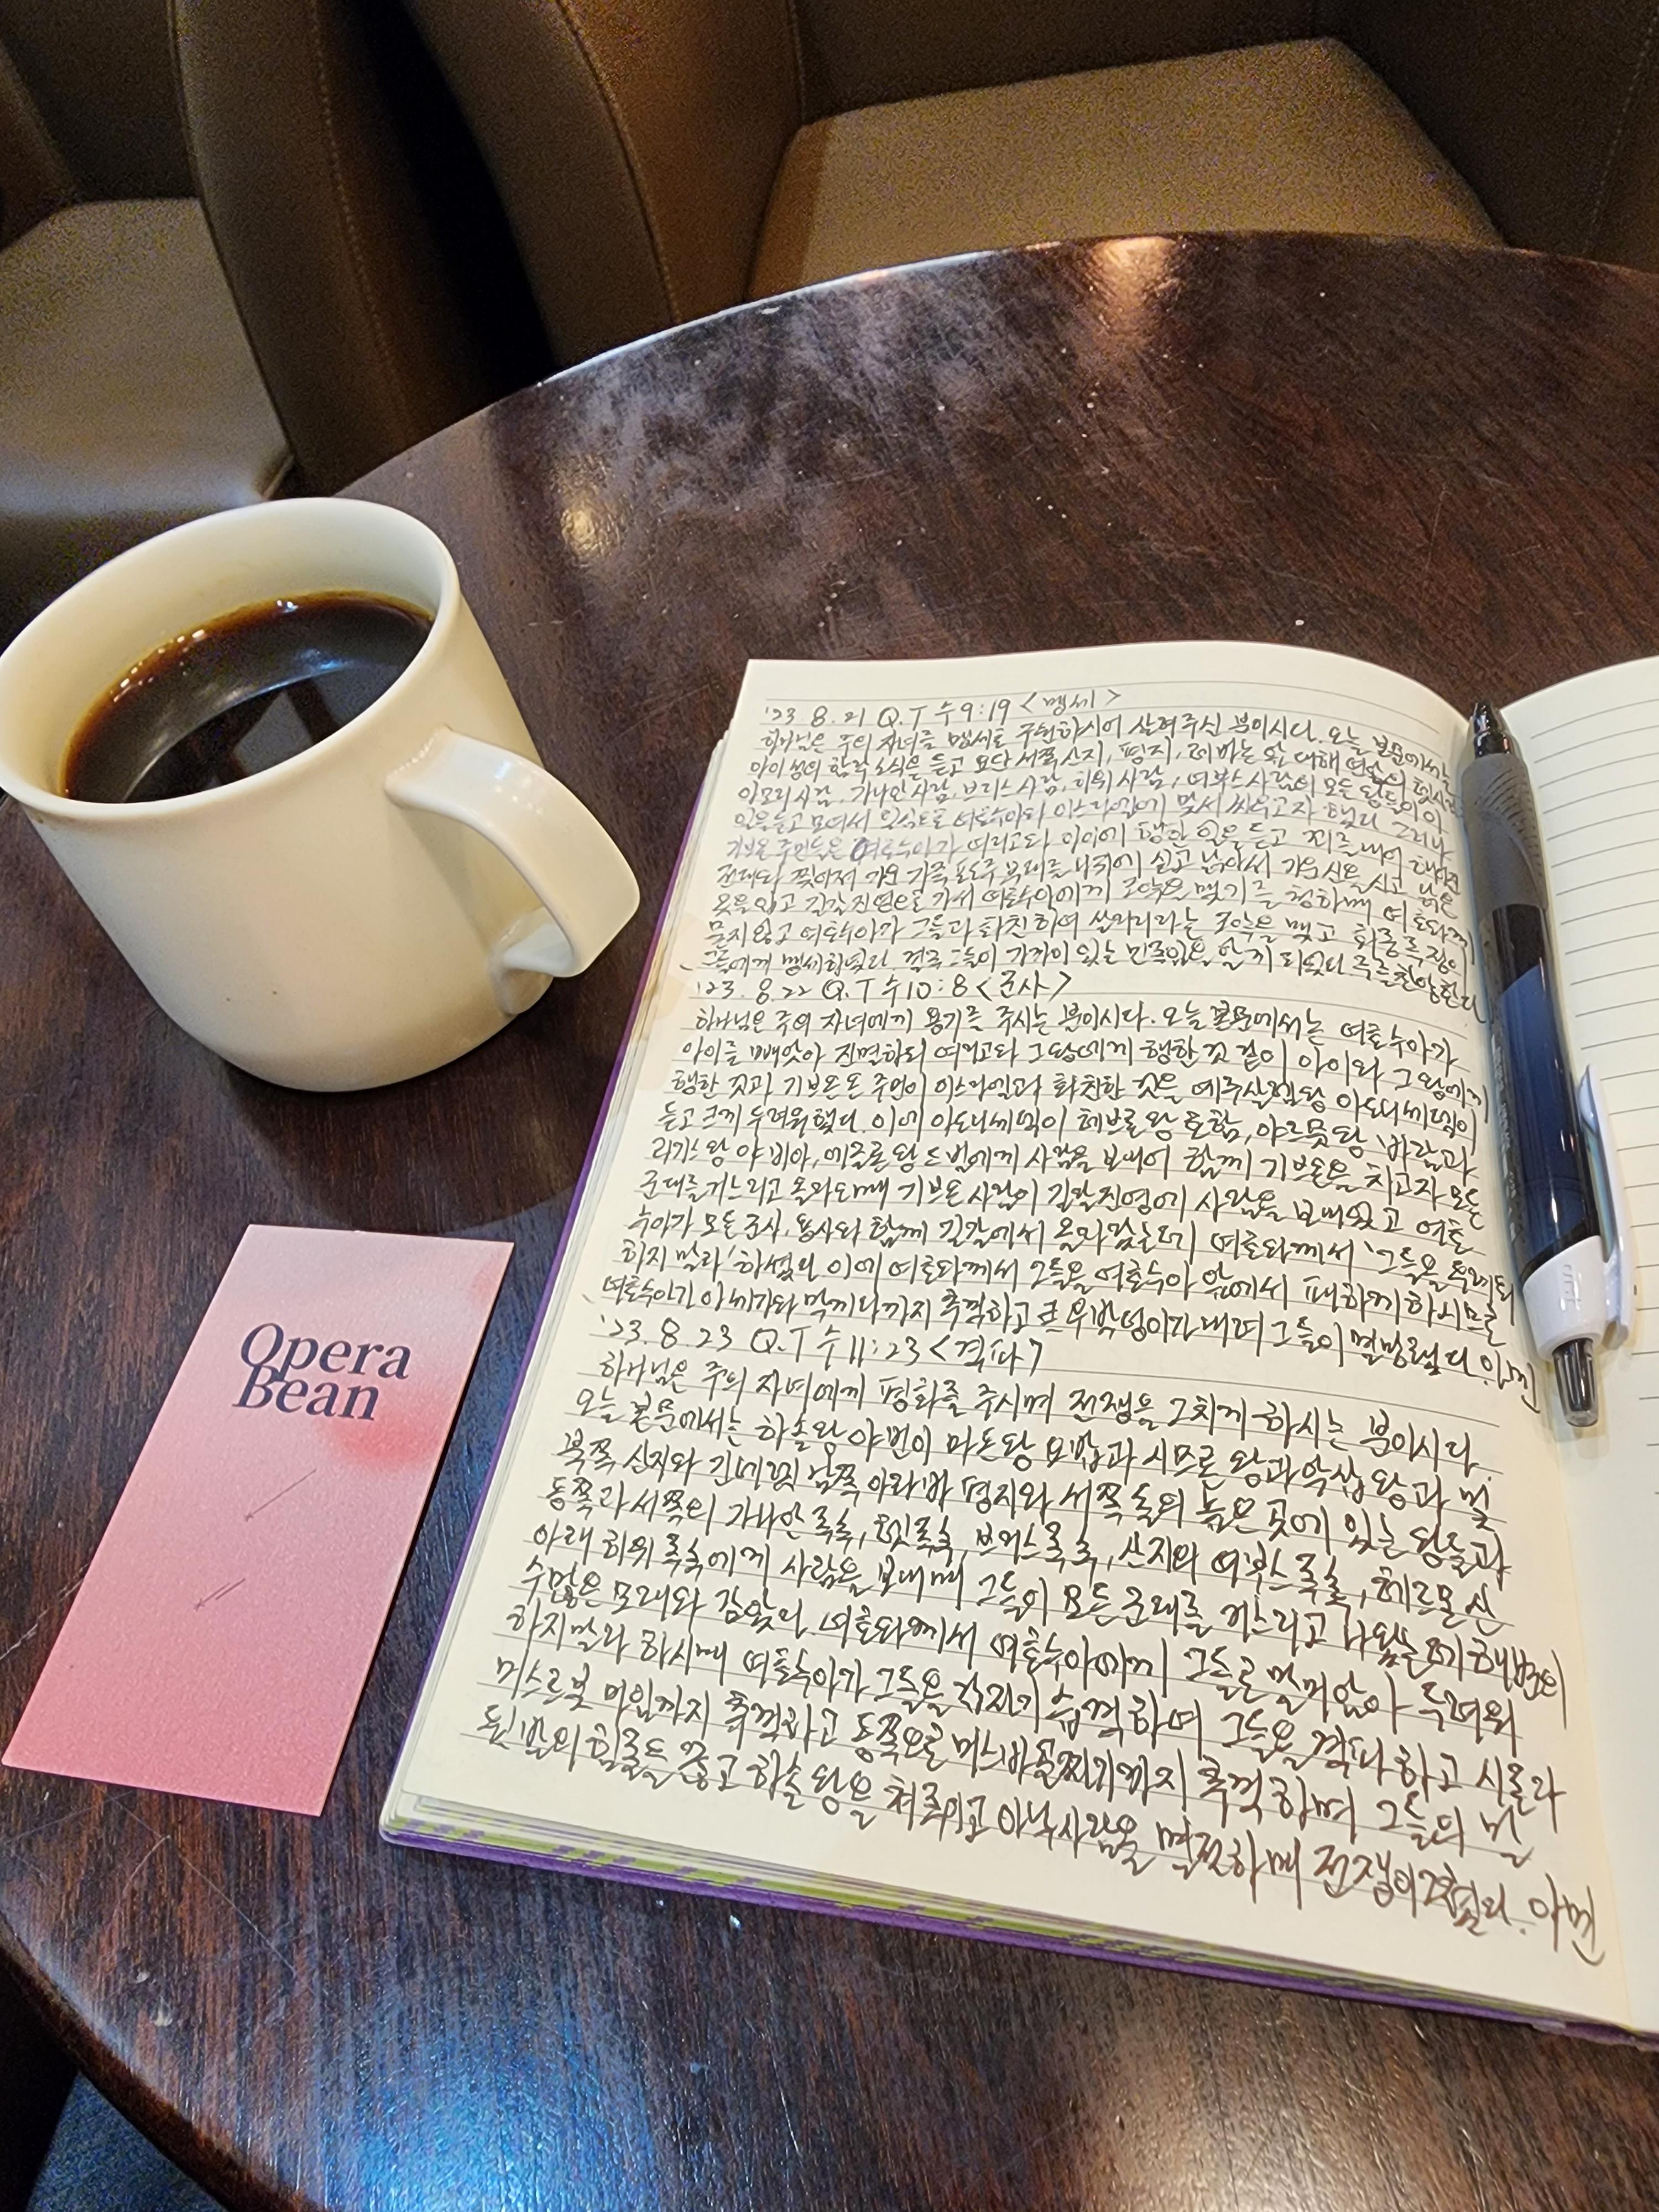 Opera
Bean
'23. 8. 21 Q.T 수9:19 <맹세>
하나님은 주의 자녀를 맹세로 구원하시어 살려주신 분이시다. 오늘 본문에서는
아이성의 함락 소식을 듣고 요단 서쪽 산지, 평지, 레바논 앞 대해 연안의 헷사람
아모리사람, 가나안사람, 브리스사람, 히위사람, 여부스사람의 모든 왕들이 이
일을 듣고 모여서 일심으로 여호수아와 이스라엘에 맞서 싸우고자 했다 그러나
기브온 주민들은 여호수아가 여리고와 아이에 행한 일을 듣고 꾀를 내어 해어진
전대와 찢어져 기운 가죽 포도주 부대를 나귀에 싣고 낡아서 기운 신을 신고 낡은
옷을 입고 길갈 진영으로 가서 여호수아에게 조약을 맺기를 청하매 여호와께
묻지 않고 여호수아가 그들과 화친하여 살리리라는 조약을 맺고 회중 족장이
그들에게 맹세하였다 결국 그들이 가까이 있는 민족임을 알게 되었다 주를 찬양한다
'23. 8. 22 Q.T 수10:8 <군사>
하나님은 주의 자녀에게 용기를 주시는 분이시다. 오늘 본문에서는 여호수아가
아이를 빼앗아 진멸하되 여리고와 그 왕에게 행한 것 같이 아이와 그 왕에게
행한 것과 기브온 주민이 이스라엘과 화친한 것을 예루살렘 왕 아도니세덱이
듣고 크게 두려워했다. 이에 아도니세덱이 헤브론 왕 호함, 야르뭇 왕 비람과
라기스 왕 야비아, 에글론 왕 드빌에게 사람을 보내어 함께 기브온을 치고자 모든
군대를 거느리고 올라오매 기브온 사람이 길갈 진영에 사람을 보내었고 여호
수아가 모든 군사, 용사와 함께 길갈에서 올라갔는데 여호와께서 '그들을 두려워
하지 말라' 하셨다 이에 여호와께서 그들을 여호수아 앞에서 패하게 하시므로
여호수아가 아세가와 막게다까지 추격하고 큰 우박 덩이가 내려 그들이 멸망했다. 아멘
'23. 8. 23 Q.T 수11:23 <격파>
하나님은 주의 자녀에게 평화를 주시며 전쟁을 그치게 하시는 분이시다.
오늘 본문에서는 하솔왕 야빈이 마돈왕 요밥과 시므론 왕과 악삽 왕과 및
북쪽 산지와 긴네롯 남쪽 아라바 평지와 서쪽 돌의 높은 곳에 있는 왕들과
동쪽과 서쪽의 가나안 족속, 헷 족속, 브리스 족속, 산지의 여부스 족속, 헤르몬 산
아래 히위 족속에게 사람을 보내매 그들이 모든 군대를 거느리고 나왔는데 해변의
수많은 모래와 같았다. 여호와께서 여호수아에게 그들로 말미암아 두려워
하지 말라 하시매 여호수아가 그들을 갑자기 습격하여 그들을 격파하고 시돈과
미스르봇 마임까지 추격하고 동쪽으로 미스바 골짜기까지 추격하며 그들의 말
뒷발의 힘줄을 끊고 하솔 왕을 쳐죽이고 아낙 사람을 멸절하매 전쟁이 그쳤다. 아멘